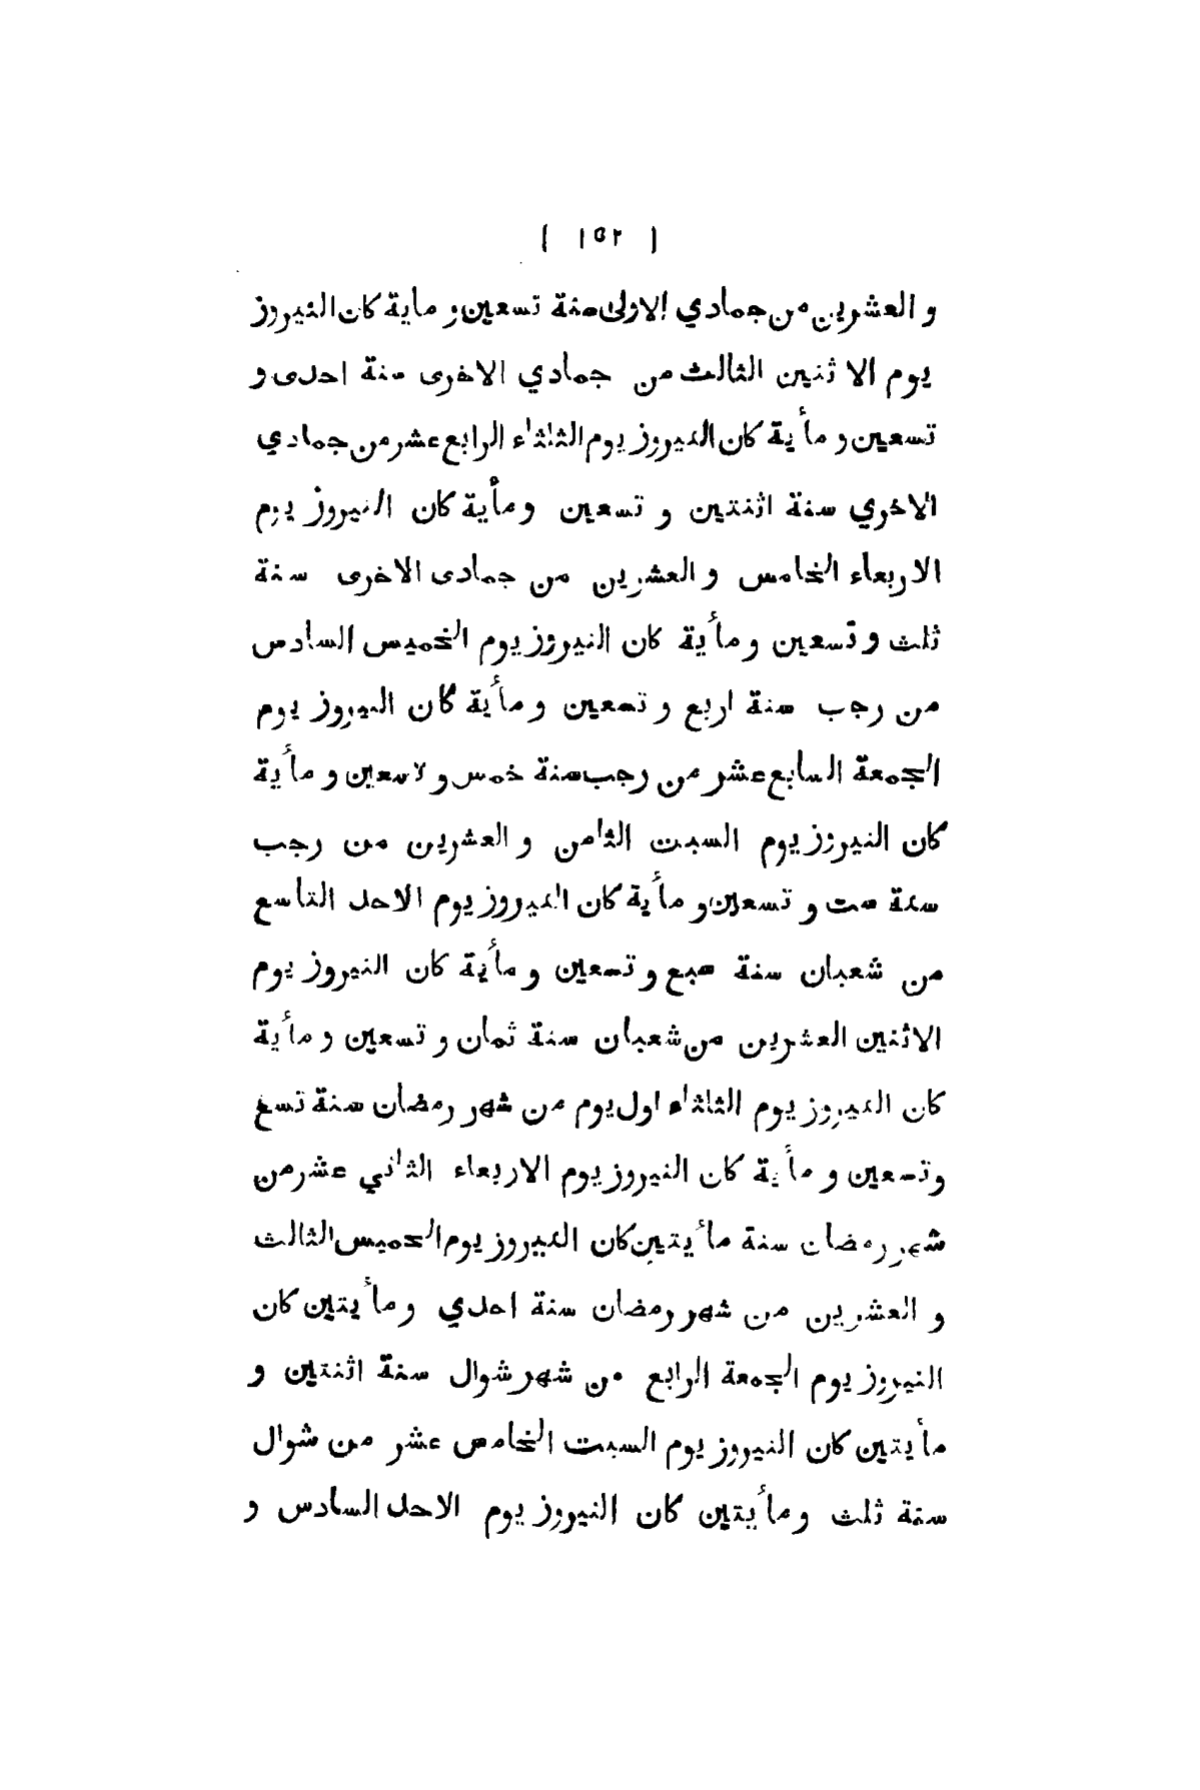 ( ١٥٢ )
و العشرين من جمادي الاولى سنة تسعين و ماية كان النيروز
يوم الا ثنين الثالث من جمادي الاخرى سنة احدى و
تسعين و مأية كان النيروز يوم الثلثاء الرابع عشر من جمادي
الاخري سنة اثنتين و تسعين ومأية كان النيروز يوم
الاربعاء الخامس و العشرين من جمادى الاخرى سنة
ثلث و تسعين و مأية كان النيروز يوم الخميس السادس
من رجب سنة اربع و تسعين و مأية كان النيروز يوم
الجمعة السابع عشر من رجب سنة خمس و تسعين و مأية
كان النيروز يوم السبت الثامن و العشرين من رجب
سنة ست و تسعين و مأية كان النيروز يوم الاحد التاسع
من شعبان سنة سبع و تسعين و مأية كان النيروز يوم
الاثنين العشرين من شعبان سنة ثمان و تسعين و مأية
كان النيروز يوم الثلثاء اول يوم من شهر رمضان سنة تسع
وتسعين و مأية كان النيروز يوم الاربعاء الثاني عشر من
شهر رمضان سنة مأيتين كان النيروز يوم الخميس الثالث
و العشرين من شهر رمضان سنة احدي و مأيتين كان
النيروز يوم الجمعة الرابع من شهر شوال سنة اثنتين و
مأيتين كان النيروز يوم السبت الخامس عشر من شوال
سنة ثلث و مأيتين كان النيروز يوم الاحد السادس و